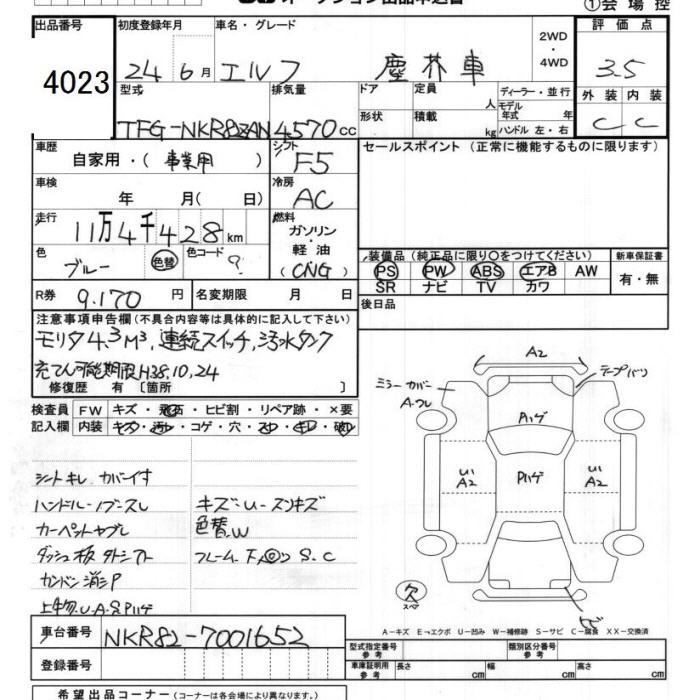 ①会場控
出品番号 4023
初度登録年月 24 6月
車名・グレード エルフ 塵芥車
2WD・4WD
評価点 3.5
型式 TFG-NKR82AN
排気量 4570cc
ドア 形状
定員 人
積載 kg
ディーラー・並行
モデル年式 年
ハンドル 左・右
外装 内装
C C
車歴 自家用・(事業用)
シフト F5
セールスポイント(正常に機能するものに限ります)
車検 年 月(日)
冷房 AC
走行 11万4千428km
燃料 ガソリン・軽油 (CNG)
色 ブルー 色替 色コード ?
装備品(純正品に限り○をつけてください)
PS PW ABS エアB AW
SR ナビ TV カワ
新車保証書 有・無
R券 9.170円
名変期限 月 日
後日品
注意事項申告欄(不具合内容等は具体的に記入して下さい)
モリタ4.3M³,連続スイッチ,汚水タンク
充てん可能期限H38.10.24
修復歴 有〔箇所 〕
検査員記入欄
FW キズ・飛石・ヒビ割・リペア跡・×要
内装 キズ・汚レ・コゲ・穴・スレ・キレ・破レ
シートキレ カバーイす
ハンドル・ノブースレ
カーペットヤブレ
ダッシュ板 外シフト
キズ・U-スンキズ
色替.W
フレーム.下廻り S.C
上物.U.A.S Pハゲ
A2
テープバリ
ミラーカバー
A.ワレ
Pハゲ
Pハゲ
いA2
いA2
欠
スペア
ヒビ
A-キズ E-エクボ U-凹み W-補修跡 S-サビ C-腐食 XX-交換済
車台番号 NKR82-7001652
登録番号
型式指定番号 参考
類別区分番号 参考
車庫証明用 参考 長さ cm 幅 cm 高さ cm
希望出品コーナー(コーナーは各会場により異なります。)